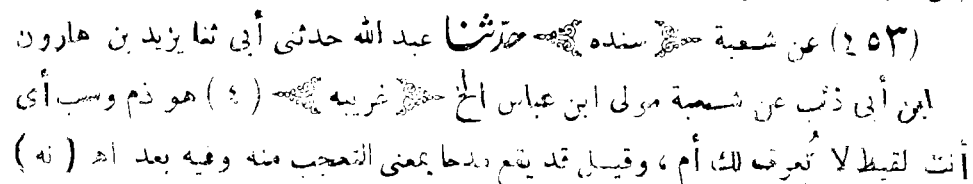 (٤٥٣) عن شعبة ﴿ سنده ﴾ حدثنا عبد الله حدثنى أبى ثنا يزيد بن هارون
ابن أبى ذئب عن شعبة مولى ابن عباس الخ ﴿ غريبه ﴾ (٤) هو ذم وسب أى
أنت لقيط لا تُعرف لك أم ، وقيل قد يقع مدحا بمعنى التعجب منه وفيه بعد اهـ (نه)